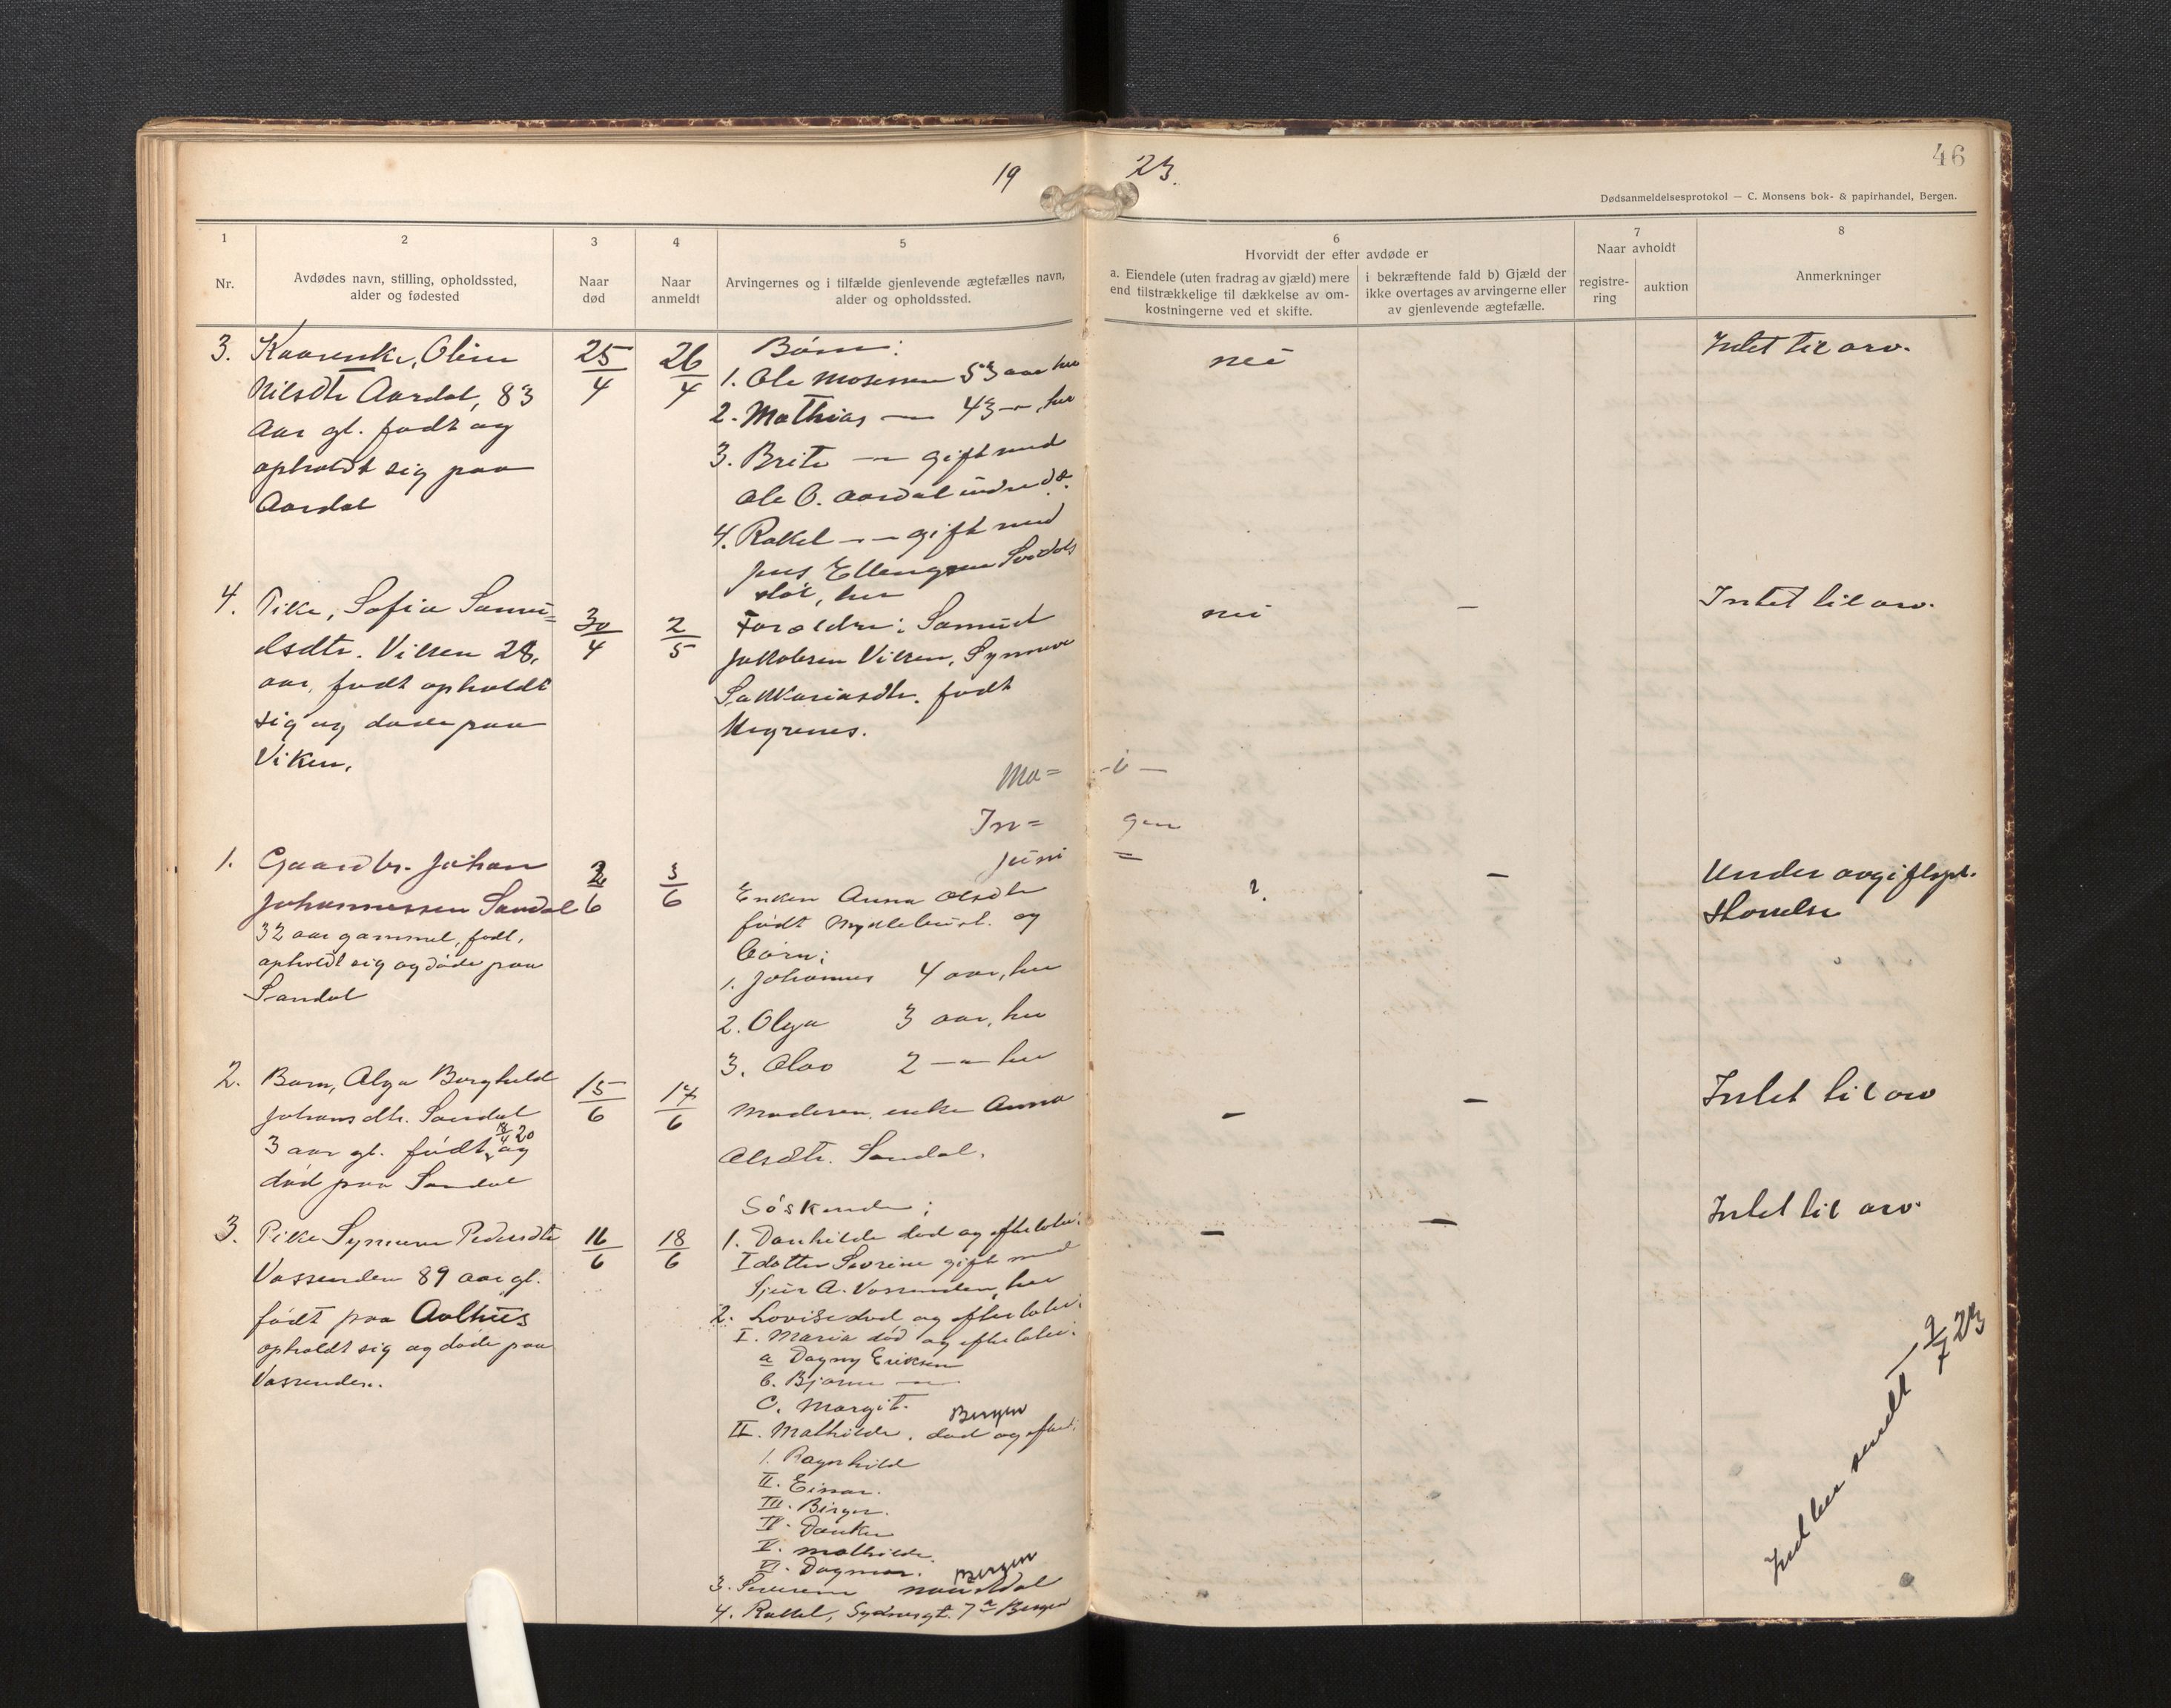 19 23.
46
Dødsanmeldelsesprotokol — C. Monsens bok- & papirhandel, Bergen.
1
Nr.
2
Avdødes navn, stilling, opholdssted,
alder og fødested
3
Naar
død
4
Naar
anmeldt
5
Arvingernes og i tilfælde gjenlevende ægtefælles navn,
alder og opholdssted.
6
Hvorvidt der efter avdøde er
a. Eiendele (uten fradrag av gjæld) mere
end tilstrækkelige til dækkelse av om-
kostningerne ved et skifte.
i bekræftende fald b) Gjæld der
ikke overtages av arvingerne eller
av gjenlevende ægtefælle.
7
Naar avholdt
registre-
ring
auktion
8
Anmerkninger
3.
Kaarenke, Oline
Nilsdtr Aardal, 83
aar gl. født og
opholdt sig paa
Aardal
25/4
26/4
Børn:
1. Ole Mosesen 53 aar her
2. Mathias — 43 — „ her
3. Brite — gift med
Ole O. Aardal indre
4. Rakel — — gift med
Jens Ellengsen
støl, her
nei
Intet til arv.
4.
Pike, Sofia Samu=
elsdtr. Viken 28.
aar, født opholdt
sig og døde paa
Viken.
30/4
2/5
Forældre: Samuel
Jakobsen Viken, Synneve
Sakkariasdtr. født
Hegrenes.
nei
—
Intet til arv.
Ma= -i —
In= gen
Juni =
1.
Gaardbr. Johan
Johannessen Sandal
32 aar gammel, født,
opholdt sig og døde paa
Sandal
2/6
3/6
Enken Anna Olsdtr
født Myklebust. og
børn:
1. Johannes 4 aar, her
2. Olga 3 aar, her
3. Olav 2 —„— her
?
—
Under avgiftspl.
2.
Barn, Olga Borghild
Johansdtr. Sandal
3 aar gl. født 20 og
død paa Sandal
15/6
17/6
Moderen, enke Anna
Olsdtr. Sandal.
—
—
Intet til arv
3.
Pike Synneve Pedersdtr
Vassenden 89 aar gl.
født paa Aalhus
opholdt sig og døde paa
Vassenden.
16/6
18/6
Søskende:
1. Danhilde død og efterlatt:
I datter Severine gift med
Sjur A. Vassenden, her
2. Lovise død og efterlatt:
I. Maria død og efterlatt:
a Dagny Eriksen
b. Bjarne —
c. Margit.
Bergen
II. Mathilde. død og
I. Ragnhild
II. Einar.
III. Birger.
IV. Danke
V. Mathilde.
VI. Dagmar. Bergen
3. Severine Naustdal
4. Rakel, Sydnesgt. 7a Bergen
—
—
Intet til arv.
Indber. sendt 9/7 23